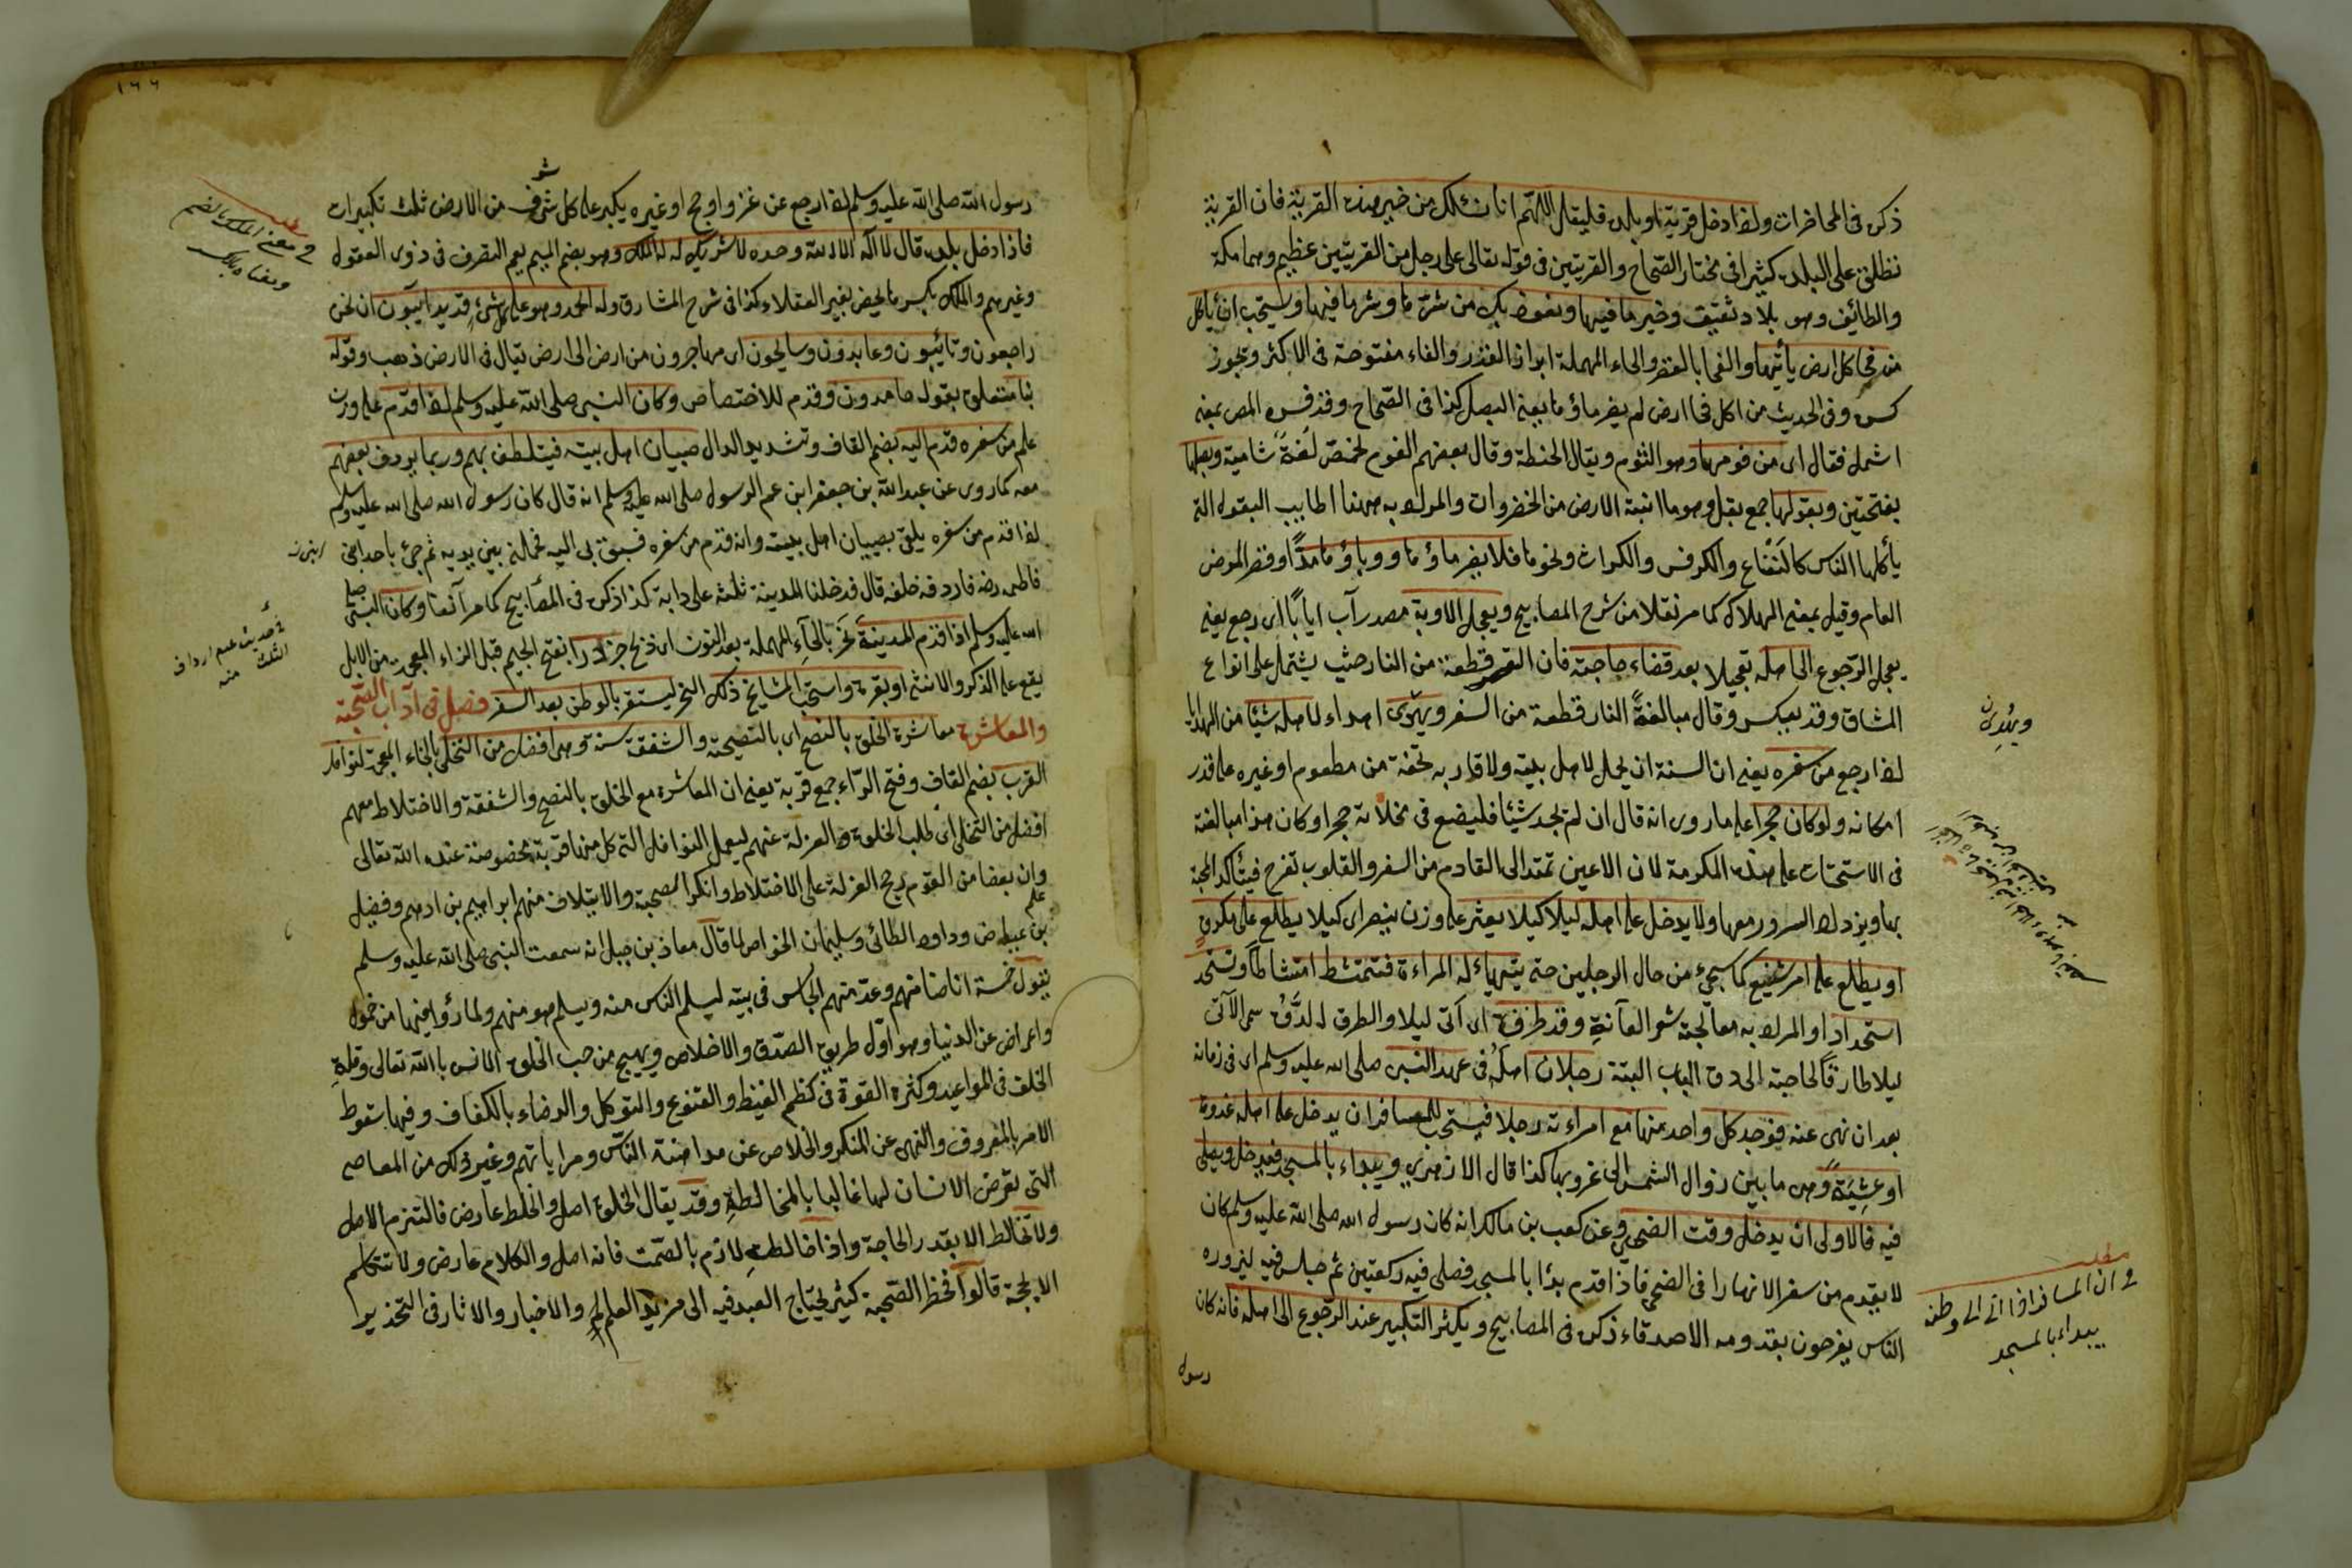 ذكره فى المحاضرات واذا دخل قرية او بلدة فليقل اللهم انا نسئلك من خير هذه القرية فان القرية
تطلق على البلدة كثيرا فى مختار الصحاح والقريتين فى قوله تعالى على رجل من القريتين عظيم وهما مكة
والطائف وهو بلاد ثقيف وخير ما فيها ونعوذ بك من شرها وشر ما فيها ويستحب ان يأكل
من فحا كل ارض يأتيها والفحا بالقصر والحاء المهملة ابزار القدر والفاء مفتوحة فى الاكثر ويجوز
كسره وفى الحديث من اكل فحا ارض لم يضره ماؤها يعنى البصل كذا فى الصحاح وقد فسره المص بمعنى
اشمل فقال اى من فومها وهو الثوم ويقال الحنطة وقال بعضهم الفوم الحمص لغة شامية وبصلها
بفتحتين وبقولها جمع بقل وهو ما انبته الارض من الخضروات والمراد به ههنا اطايب البقول التى
يأكلها الناس كالنعناع والكرفس والكراث ونحوها فلا يضر ماؤها ووباؤها مدّا وقصر المرض
العام وقيل بمعنى الهلاك كما مر نقلا من شرح المصابيح ويعجل الاوبة مصدر آب ايابا اى رجع يعنى
يعجل الرجوع الى اهله تعجيلا بعد قضاء حاجته فان السفر قطعة من النار حيث يشتمل على انواع
المشاق وقد يعكس وقال مبالغة النار قطعة من السفر ويهوى اهداء لاهله شيئا من الهدايا
اذا رجع من سفره يعنى ان السنة ان يحمل لاهل بيته ولاقاربه تحفة من مطعوم او غيره على قدر
امكانه ولو كان حجرا على ما روى انه قال ان لم يجد شيئا فليضع فى مخلاته حجرا وكان هذا مبالغة
فى الاستحثاث على هذه المكرمة لان الاعين تمتد الى القادم من السفر والقلوب تفرح فيتأكد المحبة
بها ويزداد السرور معها ولا يدخل على اهله ليلا كيلا يعثر على وزن ينصر اى كيلا يطلع على مكروه
او يطلع على امر شنيع كما سيجئ من حال الرجلين حتى يتهياء له المراءة فتمتشط امتشاطا وتستحد
استحدادا والمراد به معالجة شعر العانة وقد طرق اى اتى ليلا والطرق الدق سمى الآتى
ليلا طارقا لحاجته الى دق الباب البتة رجلان اهله فى عهد النبى صلى الله عليه وسلم اى فى زمانه
بعد ان نهى عنه فوجد كل واحد منهما مع امراءته رجلا فيستحب للمسافر ان يدخل على اهله غدوة
او عشية وهى ما بين زوال الشمس الى غروبها كذا قال الازهرى ويبداء بالمسجد فيدخل ويصلى
فيه فالاولى ان يدخل وقت الضحى وعن كعب بن مالك انه كان رسول الله صلى الله عليه وسلم كان
لا يقدم من سفر الا نهارا فى الضحى فاذا قدم بدا بالمسجد فصلى فيه ركعتين ثم جلس فيه ليزوره
الناس يفرحون بقدومه الاصدقاء ذكره فى المصابيح ويكثر التكبير عند الرجوع الى اهله فانه كان
رسول
مطلب
فى ان المسافر اذا اتى الى وطنه
يبداء بالمسجد
١٦٦
رسول الله صلى الله عليه وسلم اذا رجع عن غزو او حج او غيره يكبر على كل شرف من الارض ثلث تكبيرات
فاذا دخل بلده قال لا اله الا الله وحده لا شريك له له الملك وهو بضم الميم يعم التصرف فى ذوى العقول
وغيرهم والملك بكسرها يخص بغير العقلاء كذا فى شرح المشارق وله الحمد وهو على كل شئ قدير آيبون اى نحن
راجعون وتائبون وعابدون وسايحون اى مهاجرون من ارض الى ارض يقال فى الارض ذهب وقوله
بنا متعلق بقوله حامدون وقدم للاختصاص وكان النبى صلى الله عليه وسلم اذا قدم على وزن
علم من سفره قدم اليه بضم القاف وتشديد الدال صبيان اهل بيته فيتلطف بهم وربما يردف بعضهم
معه كما روى عن عبد الله بن جعفر ابن عم الرسول صلى الله عليه وسلم انه قال كان رسول الله صلى الله عليه وسلم
اذا قدم من سفره يلق بصبيان اهل بيته وانه قدم من سفره فسبق بى اليه فحملنى بين يديه ثم جئ باحد ابنى
فاطمة رضه فاردفه خلفه قال فدخلنا المدينة ثلثة على دابة كذا ذكره فى المصابيح كما مر آنفا وكان النبى صلى
الله عليه وسلم اذا قدم المدينة نحر بالحاء المهملة بعد النون اى ذبح جزورا بفتح الجيم قبل الزاء المعجمة من الابل
يقع على الذكر والانثى او بقرة واستحب المشايخ ذلك النحر ليستقر بالوطن بعد السفر فصل فى آداب الصحبة
والمعاشرة معاشرة الخلق بالنصح اى بالنصيحة والشفقة سنة وهى افضل من التخلى بالخاء المعجمة لنوافل
القرب بضم القاف وفتح الراء جمع قربة يعنى ان المعاشرة مع الخلق بالنصح والشفقة والاختلاط معهم
افضل من التخلى اى طلب الخلوة والعزلة عنهم ليعمل النوافل التى كل منها قربة مخصوصة عند الله تعالى
وان بعضا من القوم رجح العزلة على الاختلاط وانكر الصحبة والايتلاف منهم ابراهيم بن ادهم وفضيل
بن عياض وداود الطائى وسليمان الخواص لما قال معاذ بن جبل انه سمعت النبى صلى الله عليه وسلم
يقول خمسة اناضامنهم وعد منهم الجالس فى بيته ليسلم الناس منه ويسلم هو منهم ولما رؤا فيها من خمول
واعراض عن الدنيا وهو اول طريق الصدق والاخلاص ويهيج من حب الخلوة الانس بالله تعالى وقلة
الخلف فى المواعيد وكثرة القوة فى كظم الغيظ والقنوع والتوكل والرضاء بالكفاف وفيها سقوط
الامر بالمعروف والنهى عن المنكر والخلاص عن مداهنة الناس ومراياتهم وغير ذلك من المعاصى
التى تعرض الانسان لها غالبا بالمخالطة وقد يقال الخلوة اصل والخلط عارض فالتزم الاصل
ولا تخالط الا بقدر الحاجة واذا خالطت لازم بالصمت فانه اصل والكلام عارض ولا تتكلم
الا بحجة قالوا فخطر الصحبة كثير يحتاج العبد فيه الى مزيد العلم والاخبار والاثار فى التحذير
مطلب
فى معنى الملك بالضم